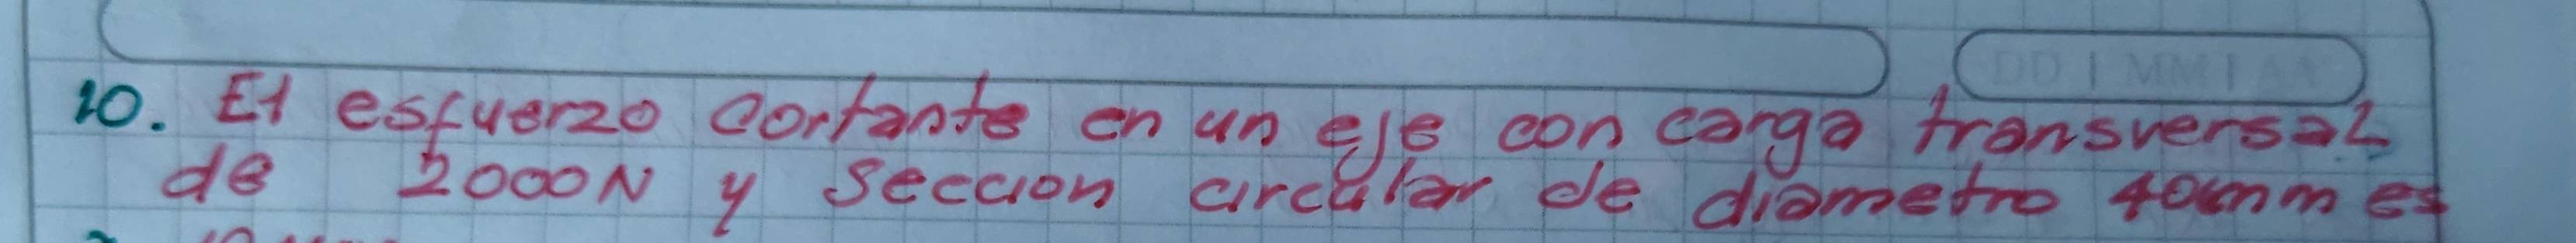 DD | MM | AA
10. El esfuerzo cortante en un eje con carga transversal
de 2000N y seccion circular de diametro 40mm es